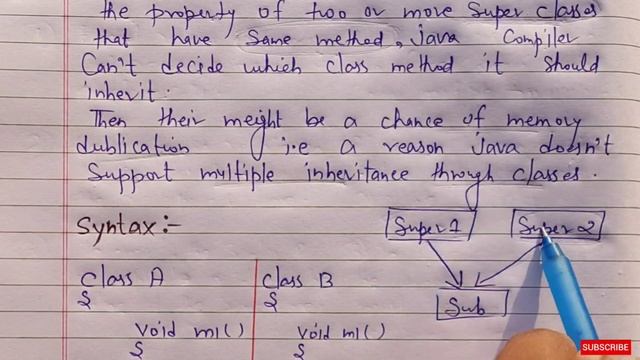 the property of two or more Super classes
that have Same method, java Compiler
Can't decide which class method it should
inherit.
Then their meight be a chance of memory
dublication i.e a reason java doesn't
Support multiple inheritance through classes.
Syntax:-
Super 1
Super 2
Sub
class A
{
void m1()
{
class B
{
void m1()
{
SUBSCRIBE